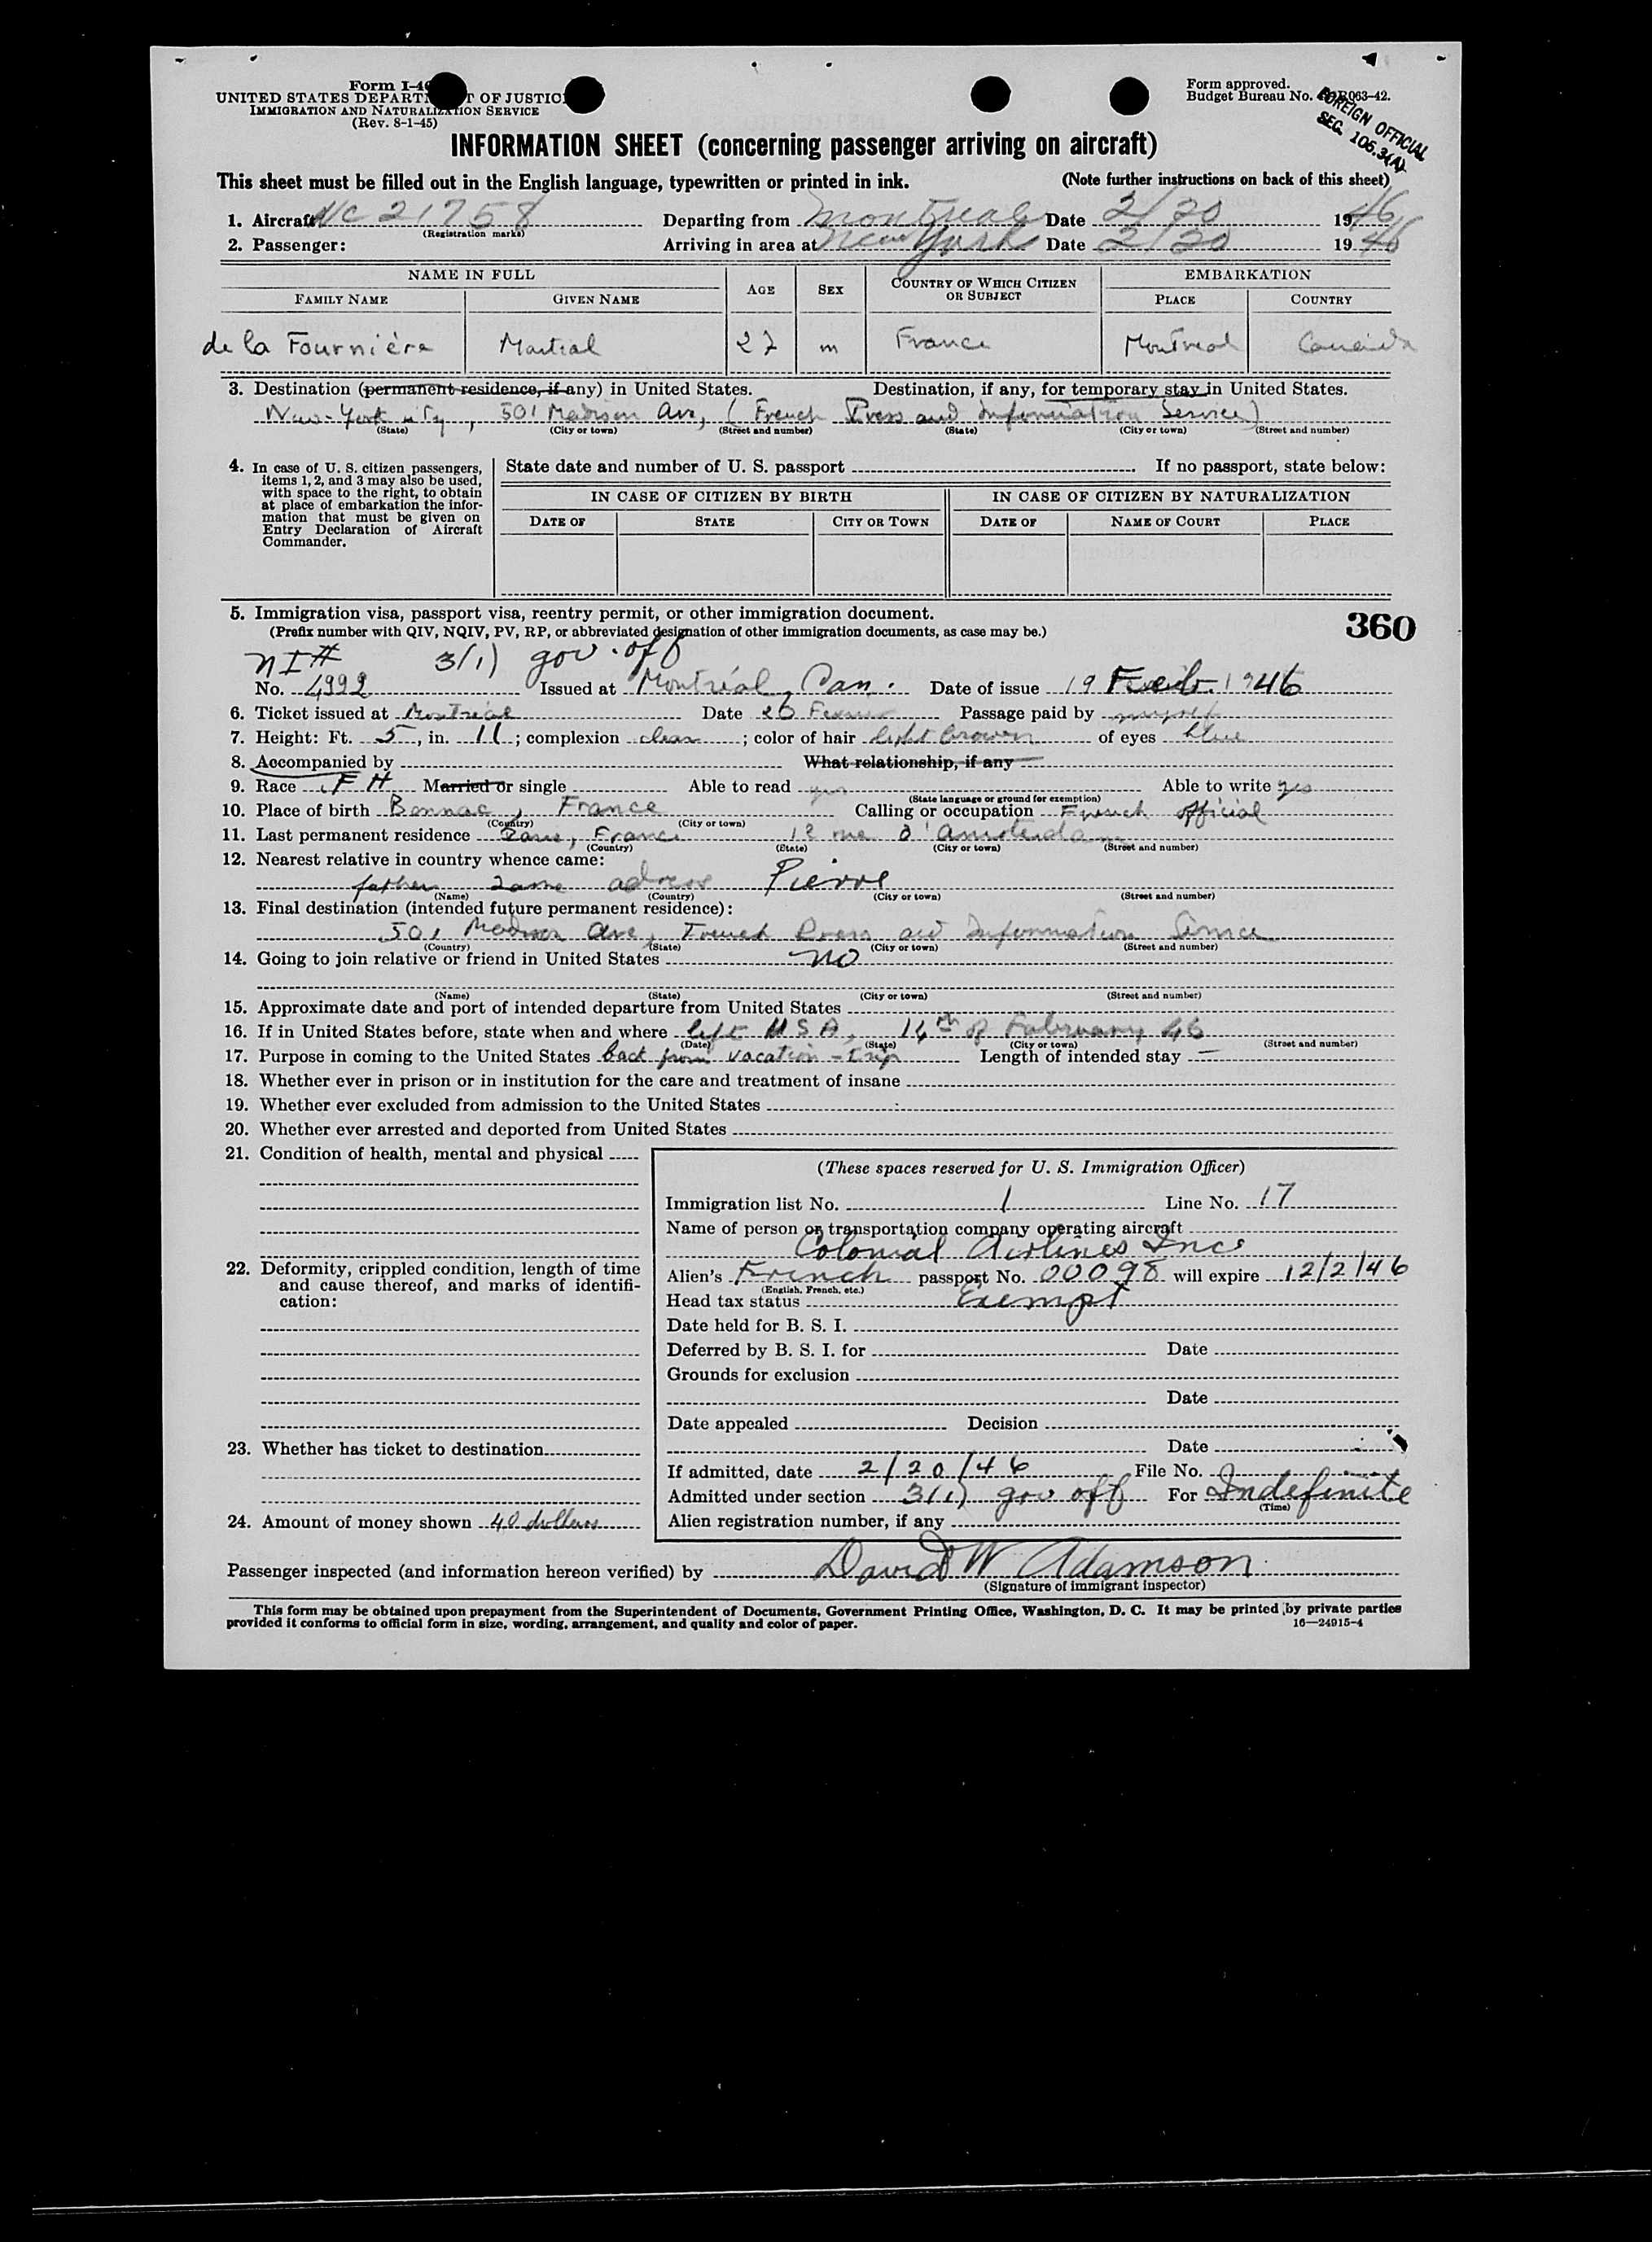 Form I-4
UNITED STATES DEPARTMENT OF JUSTICE
IMMIGRATION AND NATURALIZATION SERVICE
(Rev. 8-1-45)
Form approved.
Budget Bureau No. 063-42.
FOREIGN OFFICIAL
SEC. 106.3(A)
INFORMATION SHEET (concerning passenger arriving on aircraft)
This sheet must be filled out in the English language, typewritten or printed in ink. (Note further instructions on back of this sheet)
1. Aircraft NC 21758 Departing from Montreal Date 2/20 1946
(Registration marks)
2. Passenger: Arriving in area at New York Date 2/20 1946
NAME IN FULL AGE SEX COUNTRY OF WHICH CITIZEN OR SUBJECT EMBARKATION
FAMILY NAME GIVEN NAME PLACE COUNTRY
de la Fournière Martial 27 m France Montreal Canada
3. Destination (permanent residence, if any) in United States. Destination, if any, for temporary stay in United States.
New-York city, 501 Madison Ave, (French Press and Information Service)
(State) (City or town) (Street and number) (State) (City or town) (Street and number)
4. In case of U. S. citizen passengers, items 1, 2, and 3 may also be used, with space to the right, to obtain at place of embarkation the information that must be given on Entry Declaration of Aircraft Commander.
State date and number of U. S. passport If no passport, state below:
IN CASE OF CITIZEN BY BIRTH IN CASE OF CITIZEN BY NATURALIZATION
DATE OF STATE CITY OR TOWN DATE OF NAME OF COURT PLACE
5. Immigration visa, passport visa, reentry permit, or other immigration document.
(Prefix number with QIV, NQIV, PV, RP, or abbreviated designation of other immigration documents, as case may be.)
360
NI# 3(1) gov. off
No. 4992 Issued at Montréal, Can. Date of issue 19 Feb. 1946
6. Ticket issued at Montréal Date 20 Passage paid by myself
7. Height: Ft. 5, in. 11; complexion clear; color of hair light brown of eyes blue
8. Accompanied by What relationship, if any
9. Race FH Married or single Able to read yes Able to write yes
(State language or ground for exemption)
10. Place of birth Bonnac, France Calling or occupation French official
(Country) (City or town)
11. Last permanent residence Paris, France 12 rue d'Amsterdam
(Country) (State) (City or town) (Street and number)
12. Nearest relative in country whence came:
father same adress Pierre
(Name) (Country) (City or town) (Street and number)
13. Final destination (intended future permanent residence):
501 Madison Ave, French Press and Information Service
(Country) (State) (City or town) (Street and number)
14. Going to join relative or friend in United States no
(Name) (State) (City or town) (Street and number)
15. Approximate date and port of intended departure from United States
16. If in United States before, state when and where left USA, 14th of February 46
(Date) (State) (City or town) (Street and number)
17. Purpose in coming to the United States back from vacation-trip Length of intended stay —
18. Whether ever in prison or in institution for the care and treatment of insane
19. Whether ever excluded from admission to the United States
20. Whether ever arrested and deported from United States
21. Condition of health, mental and physical
22. Deformity, crippled condition, length of time and cause thereof, and marks of identification:
23. Whether has ticket to destination
24. Amount of money shown 40 dollars
(These spaces reserved for U. S. Immigration Officer)
Immigration list No. 1 Line No. 17
Name of person or transportation company operating aircraft
Colonial Airlines Inc
Alien's French passport No. 00098 will expire 12/2/46
(English, French, etc.)
Head tax status Exempt
Date held for B. S. I.
Deferred by B. S. I. for Date
Grounds for exclusion
Date
Date appealed Decision
Date
If admitted, date 2/20/46 File No.
Admitted under section 3(1) gov off For Indefinite
(Time)
Alien registration number, if any
Passenger inspected (and information hereon verified) by David W Adamson
(Signature of immigrant inspector)
This form may be obtained upon prepayment from the Superintendent of Documents, Government Printing Office, Washington, D. C. It may be printed by private parties
provided it conforms to official form in size, wording, arrangement, and quality and color of paper. 16—24915-4